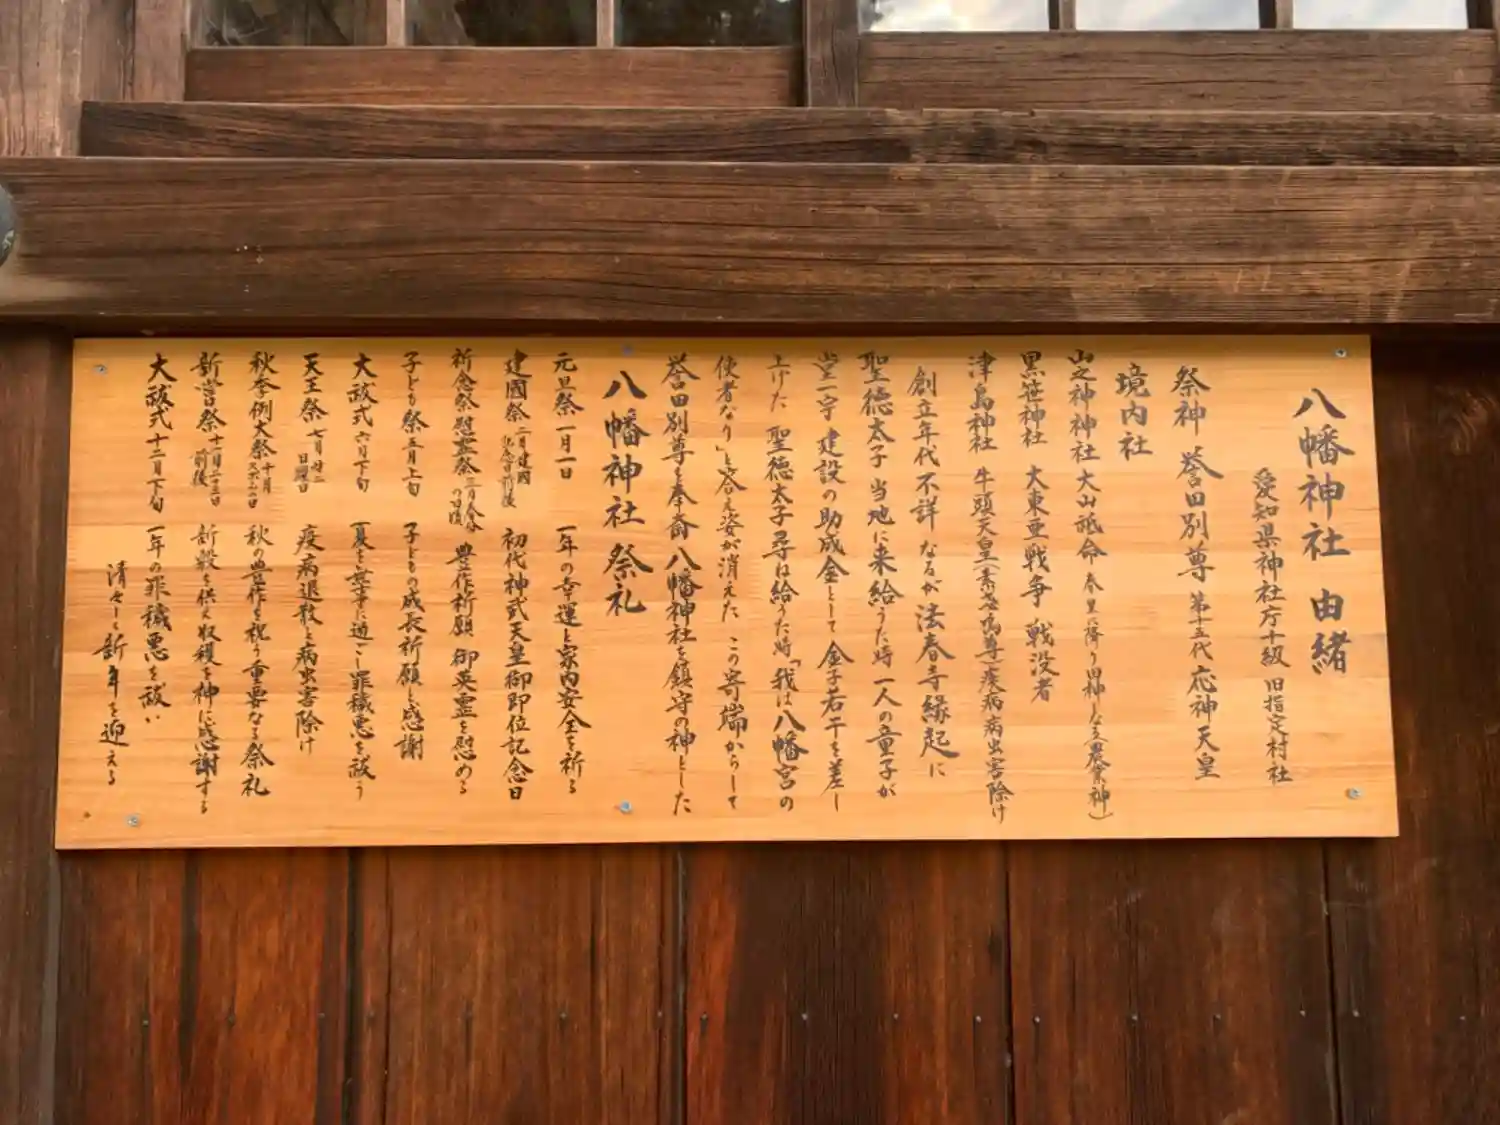 八幡神社 由緒
愛知県神社庁十級 旧指定村社
祭神 誉田別尊 第十五代 応神天皇
境内社
山之神神社 大山祗命 春里に降り田神となる(農業神)
黒笹神社 大東亜戦争 戦没者
津島神社 牛頭天皇(素盞嗚尊)疫病病虫害除け
創立年代不詳 なるが 法春寺縁起に
聖徳太子 当地に来給うた時 一人の童子が
堂一宇 建設の助成金として 金子若干を差し
上げた 聖徳太子 尋ね給うた時「我は八幡宮の
使者なり」と答え姿が消えた この寄端からして
誉田別尊を奉斎 八幡神社を鎮守の神とした
八幡神社 祭礼
元旦祭 一月一日 一年の幸運と家内安全を祈る
建國祭 二月建國記念日前後 初代神武天皇御即位記念日
祈念祭慰霊祭 三月 の日頃 豊作祈願 御英霊を慰める
子ども祭 五月上旬 子どもの成長祈願と感謝
大祓式 六月下旬 夏を無事に過ごし罪穢悪を祓う
天王祭 七月 日曜日 疫病退散と病虫害除け
秋季例大祭 十月 日 秋の豊作を祝う重要なる祭礼
新嘗祭 十一月二十三日前後 新穀を供え収穫を神に感謝する
大祓式 十二月下旬 一年の罪穢悪を祓い
清々しく新年を迎える